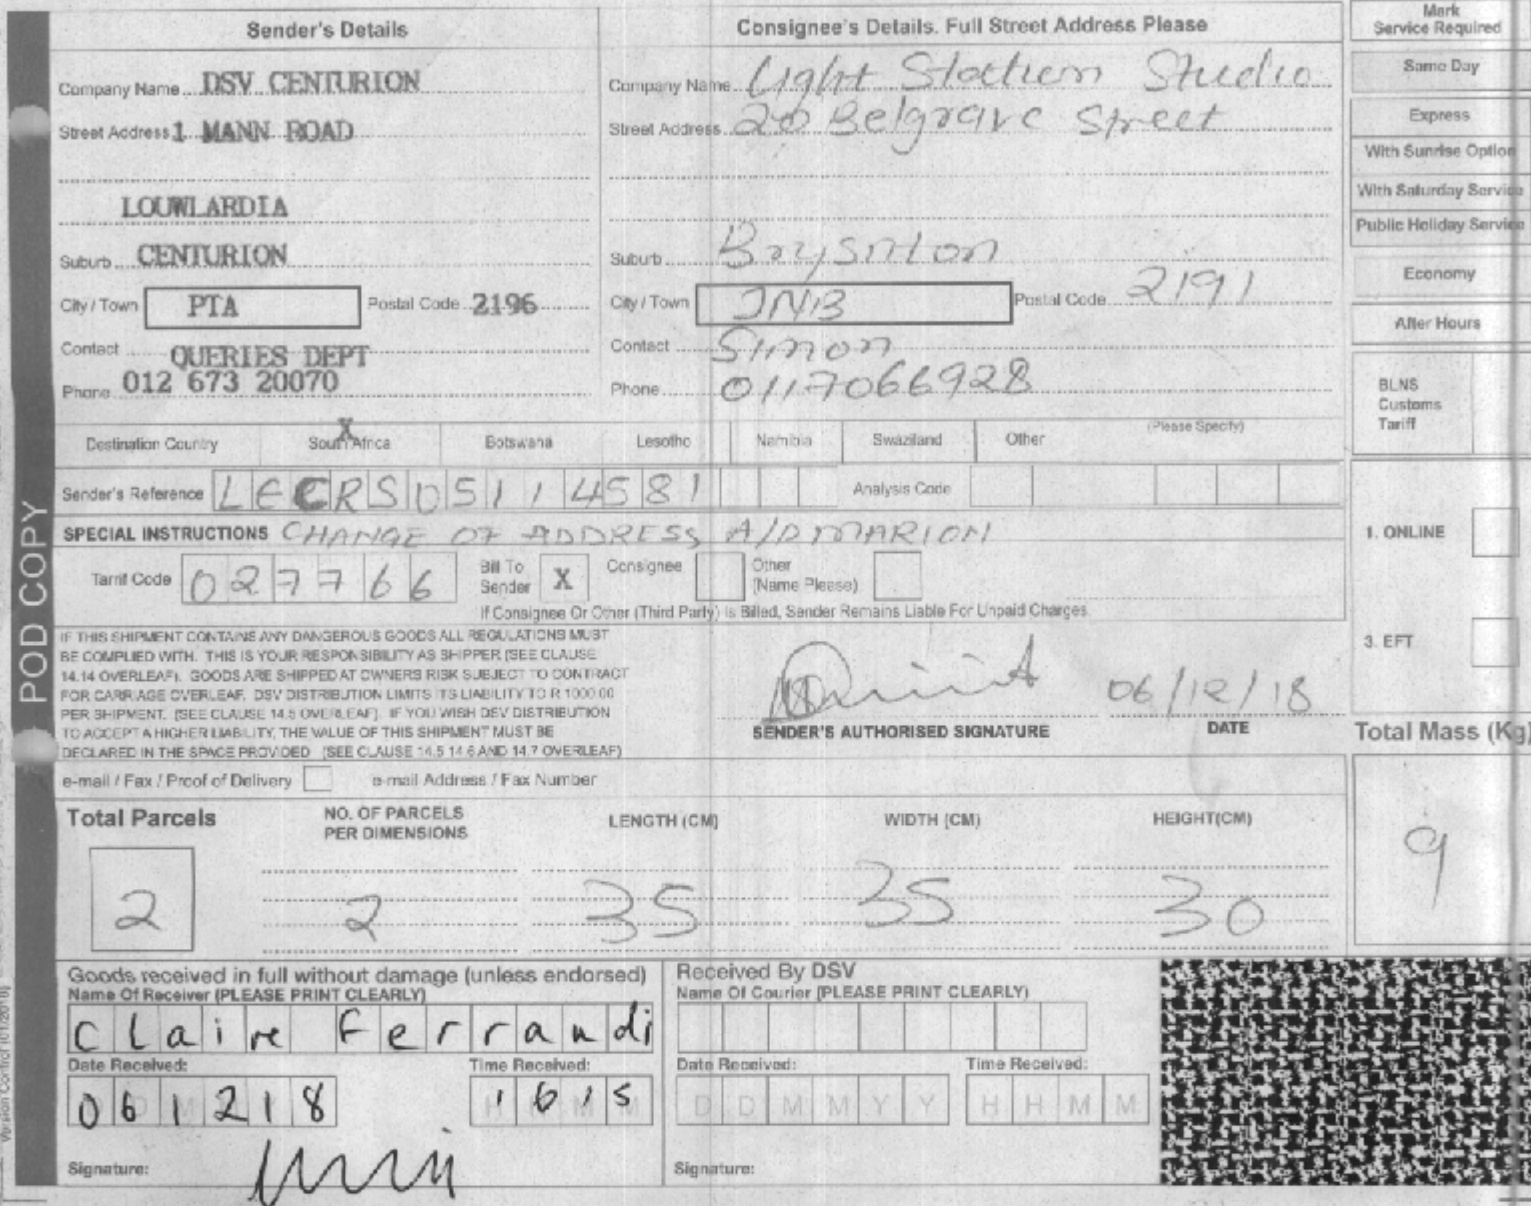 Sender's Details
Company Name DSV CENTURION
Street Address 1 MANN ROAD
LOUWLARDIA
Suburb CENTURION
City / Town PTA Postal Code 2196
Contact QUERIES DEPT
Phone 012 673 20070
Consignee's Details. Full Street Address Please
Company Name Light Station Studio
Street Address 20 Belgrave Street
Suburb Brysnton
City / Town JNB Postal Code 2191
Contact Simon
Phone 0117066928
Mark
Service Required
Same Day
Express
With Sunrise Option
With Saturday Service
Public Holiday Service
Economy
After Hours
BLNS
Customs
Tariff
Destination Country South Africa X Botswana Lesotho Namibia Swaziland Other (Please Specify)
Sender's Reference LECRS05114581 Analysis Code
SPECIAL INSTRUCTIONS CHANGE OF ADDRESS A/D MARION
Tarrif Code 027766 Bill To Sender X Consignee Other (Name Please)
If Consignee Or Other (Third Party) Is Billed, Sender Remains Liable For Unpaid Charges.
1. ONLINE
3. EFT
POD COPY
IF THIS SHIPMENT CONTAINS ANY DANGEROUS GOODS ALL REGULATIONS MUST
BE COMPLIED WITH. THIS IS YOUR RESPONSIBILITY AS SHIPPER (SEE CLAUSE
14.14 OVERLEAF). GOODS ARE SHIPPED AT OWNERS RISK SUBJECT TO CONTRACT
FOR CARRIAGE OVERLEAF. DSV DISTRIBUTION LIMITS ITS LIABILITY TO R 1000.00
PER SHIPMENT. (SEE CLAUSE 14.5 OVERLEAF). IF YOU WISH DSV DISTRIBUTION
TO ACCEPT A HIGHER LIABILITY, THE VALUE OF THIS SHIPMENT MUST BE
DECLARED IN THE SPACE PROVIDED (SEE CLAUSE 14.5 14.6 AND 14.7 OVERLEAF)
06/12/18
SENDER'S AUTHORISED SIGNATURE DATE
e-mail / Fax / Proof of Delivery e-mail Address / Fax Number
Total Mass (Kg)
9
Total Parcels NO. OF PARCELS PER DIMENSIONS LENGTH (CM) WIDTH (CM) HEIGHT(CM)
2 2 35 35 30
Goods received in full without damage (unless endorsed)
Name Of Receiver (PLEASE PRINT CLEARLY)
Claire Ferrandi
Date Received: Time Received:
061218 1615
Signature:
Received By DSV
Name Of Courier (PLEASE PRINT CLEARLY)
Date Received: Time Received:
D D M M Y Y H H M M
Signature:
Version Control (01/2018)